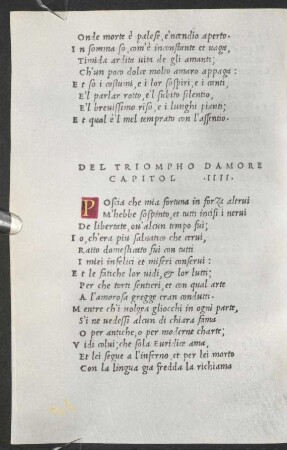 Onde morte è palese, e'ncendio aperto.
In somma so, com'è inconstante et vaga,
Timida ardita vita de gli amanti;
Ch'un poco dolce molto amaro appaga:
Et so i costumi, e i lor sospiri, e i canti,
E'l parlar rotto, e'l subito silentio,
E'l breuissimo riso, e i lunghi pianti;
Et qual è'l mel temprato con l'assentio.
DEL TRIOMPHO DAMORE
CAPITOL .IIII.
Poscia che mia fortuna in forza altrui
M'hebbe sospinto, et tutti incisi i nerui
De libertate, ou'alcun tempo fui;
Io, ch'era piu saluatico che cerui,
Ratto domesticato fui con tutti
I miei infelici et miseri conserui:
Et le fatiche lor uidi, et lor lutti;
Per che torti sentieri, et con qual arte
A l'amorosa gregge eran condutti.
Mentre ch'i uolgea gliocchi in ogni parte,
S'i ne uedessi alcun di chiara fama
O per antiche, o per moderne charte;
Vidi colui; che sola Euridice ama,
Et lei segue a l'inferno, et per lei morto
Con la lingua gia fredda la richiama